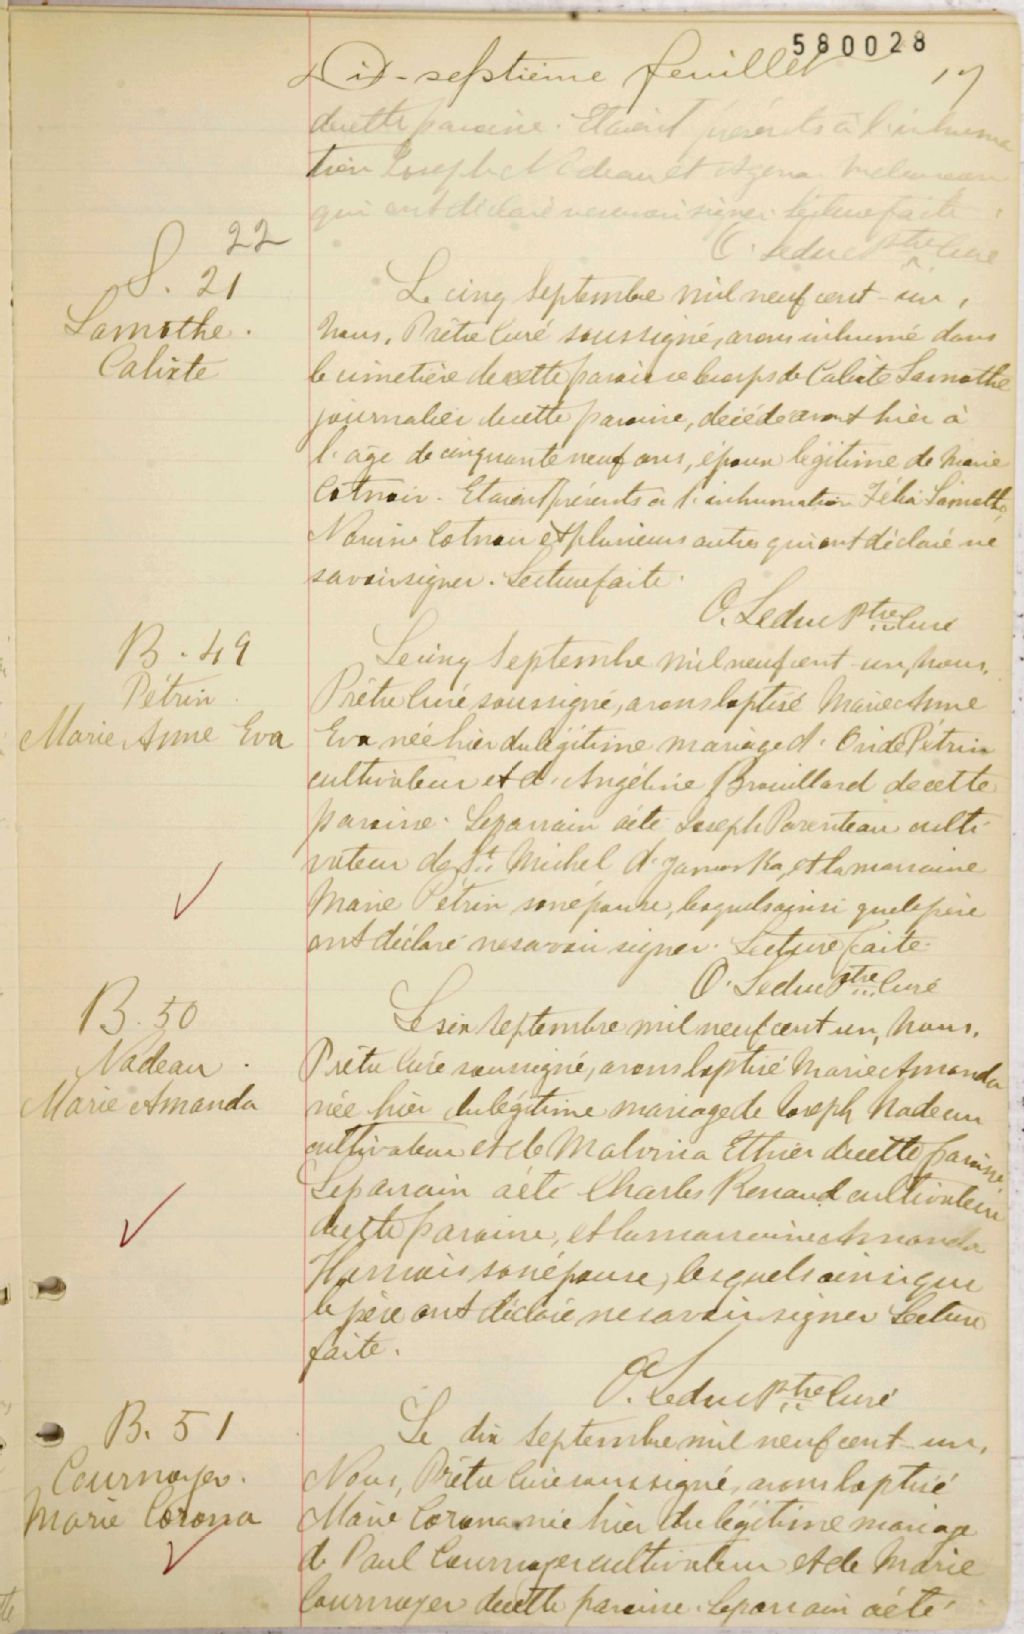 580028
Dix-septième feuillet 17
de cette paroisse. Etaient présents à l'inhuma
tion Joseph Nadeau et
qui ont déclaré ne savoir signer. Lecture faite.
O. Leduc Ptre Curé
22
S. 21
Lamothe.
Calixte
Le cinq Septembre mil neuf cent-un,
Nous, Prêtre Curé soussigné, avons inhumé dans
le cimetière de cette paroisse le corps de Calixte Lamothe
journalier de cette paroisse, décédé avant hier à
l'âge de cinquante neuf ans, époux légitime de Marie
Cotnoir. Etaient présents à l'inhumation Félix Lamothe,
Narcisse Cotnoir et plusieurs autres qui ont déclaré ne
savoir signer. Lecture faite.
O. Leduc Ptre Curé
B. 49
Pétrin
Marie Anne Eva
Le cinq Septembre mil neuf cent-un, nous,
Prêtre Curé soussigné, avons baptisé Marie Anne
Eva née hier du légitime mariage d'Ovide Pétrin
cultivateur et d'Angéline Brouillard de cette
paroisse. Le parrain a été Joseph Parenteau culti-
vateur de St. Michel d'Yamaska, et la marraine
Marie Pétrin son épouse, lesquels ainsi que le père
ont déclaré ne savoir signer. Lecture faite.
O. Leduc Ptre Curé
B. 50
Nadeau.
Marie Amanda
Le six Septembre mil neuf cent un, Nous,
Prêtre Curé soussigné, avons baptisé Marie Amanda
née hier du légitime mariage de Joseph Nadeau
cultivateur et de Malvina Ethier de cette paroisse
Le parrain a été Charles Renaud cultivateur
de cette paroisse, et la marraine Amanda
Harnois son épouse, lesquels ainsi que
le père ont déclaré ne savoir signer Lecture
faite.
O. Leduc Ptre Curé
B. 51
Cournoyer.
Marie Corona
Le dix Septembre mil neuf cent-un,
Nous, Prêtre Curé soussigné, avons baptisé
Marie Corona née hier du légitime mariage
de Paul Cournoyer cultivateur et de Marie
Cournoyer de cette paroisse. Le parrain a été